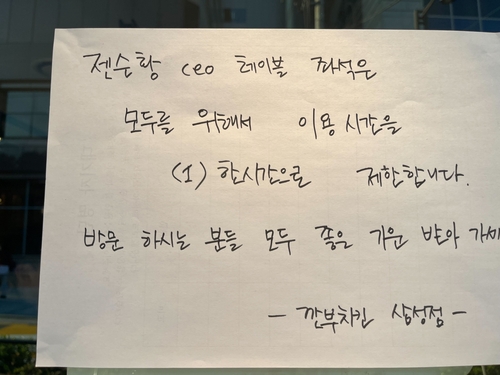 젠슨황 ceo 테이블 좌석은
모두를 위해서 이용시간을
(1) 한시간으로 제한합니다.
방문 하시는 분들 모두 좋은 기운 받아 가세
- 깐부치킨 삼성점 -